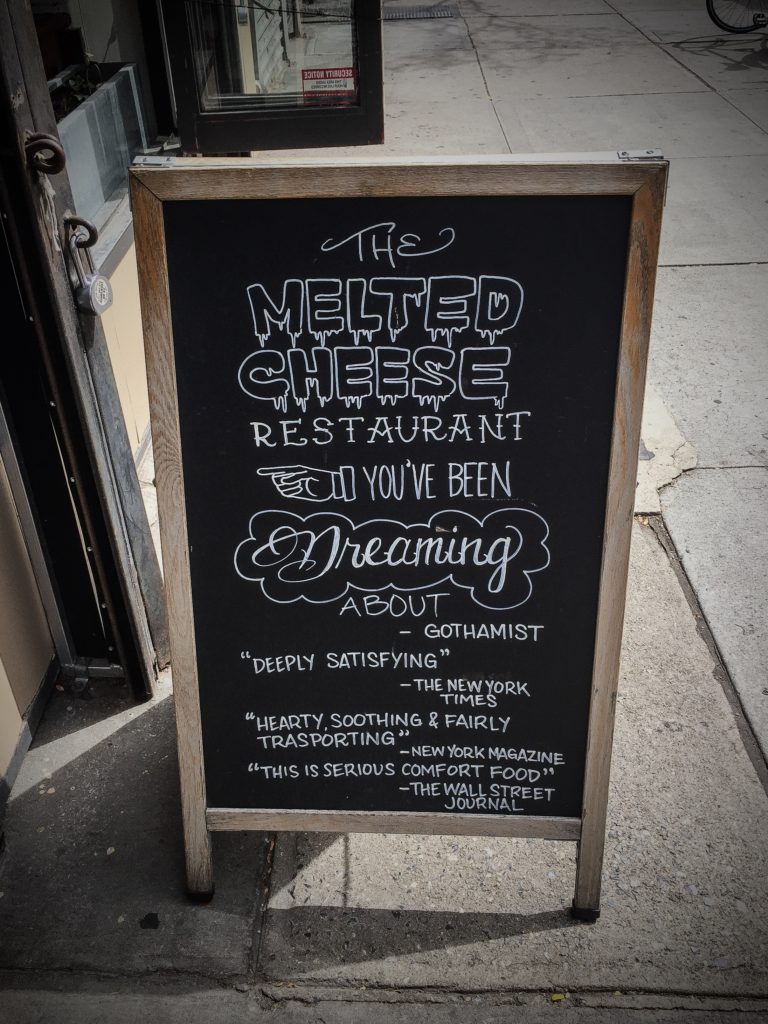 THE
MELTED
CHEESE
RESTAURANT
YOU'VE BEEN
Dreaming
ABOUT
- GOTHAMIST
"DEEPLY SATISFYING"
-THE NEW YORK
TIMES
"HEARTY, SOOTHING & FAIRLY
TRASPORTING"
-NEW YORK MAGAZINE
"THIS IS SERIOUS COMFORT FOOD"
-THE WALL STREET
JOURNAL
SECURITY NOTICE